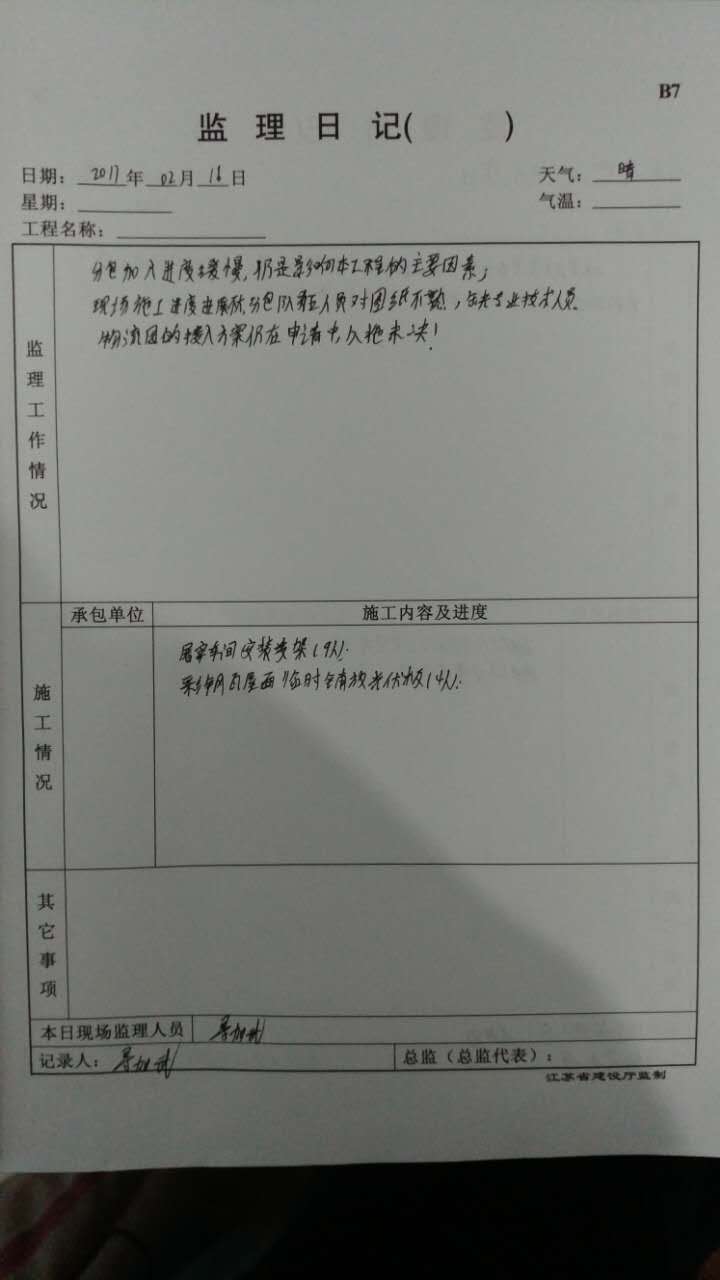 B7
监 理 日 记( )
日期: 2017 年 02 月 16 日
天气: 晴
星期:
气温:
工程名称:
监理工作情况
分包加入进度缓慢,仍是影响本工程的主要因素;
现场施工进度进展 分包队 人员对图纸不熟,缺专业技术人员.
物流园的接入方案仍在申请中,久拖未决!
施工情况
承包单位
施工内容及进度
屠宰车间安装支架(9人).
彩钢瓦屋面临时 放光伏板(4人).
其它事项
本日现场监理人员
记录人:
总监(总监代表):
江苏省建设厅监制